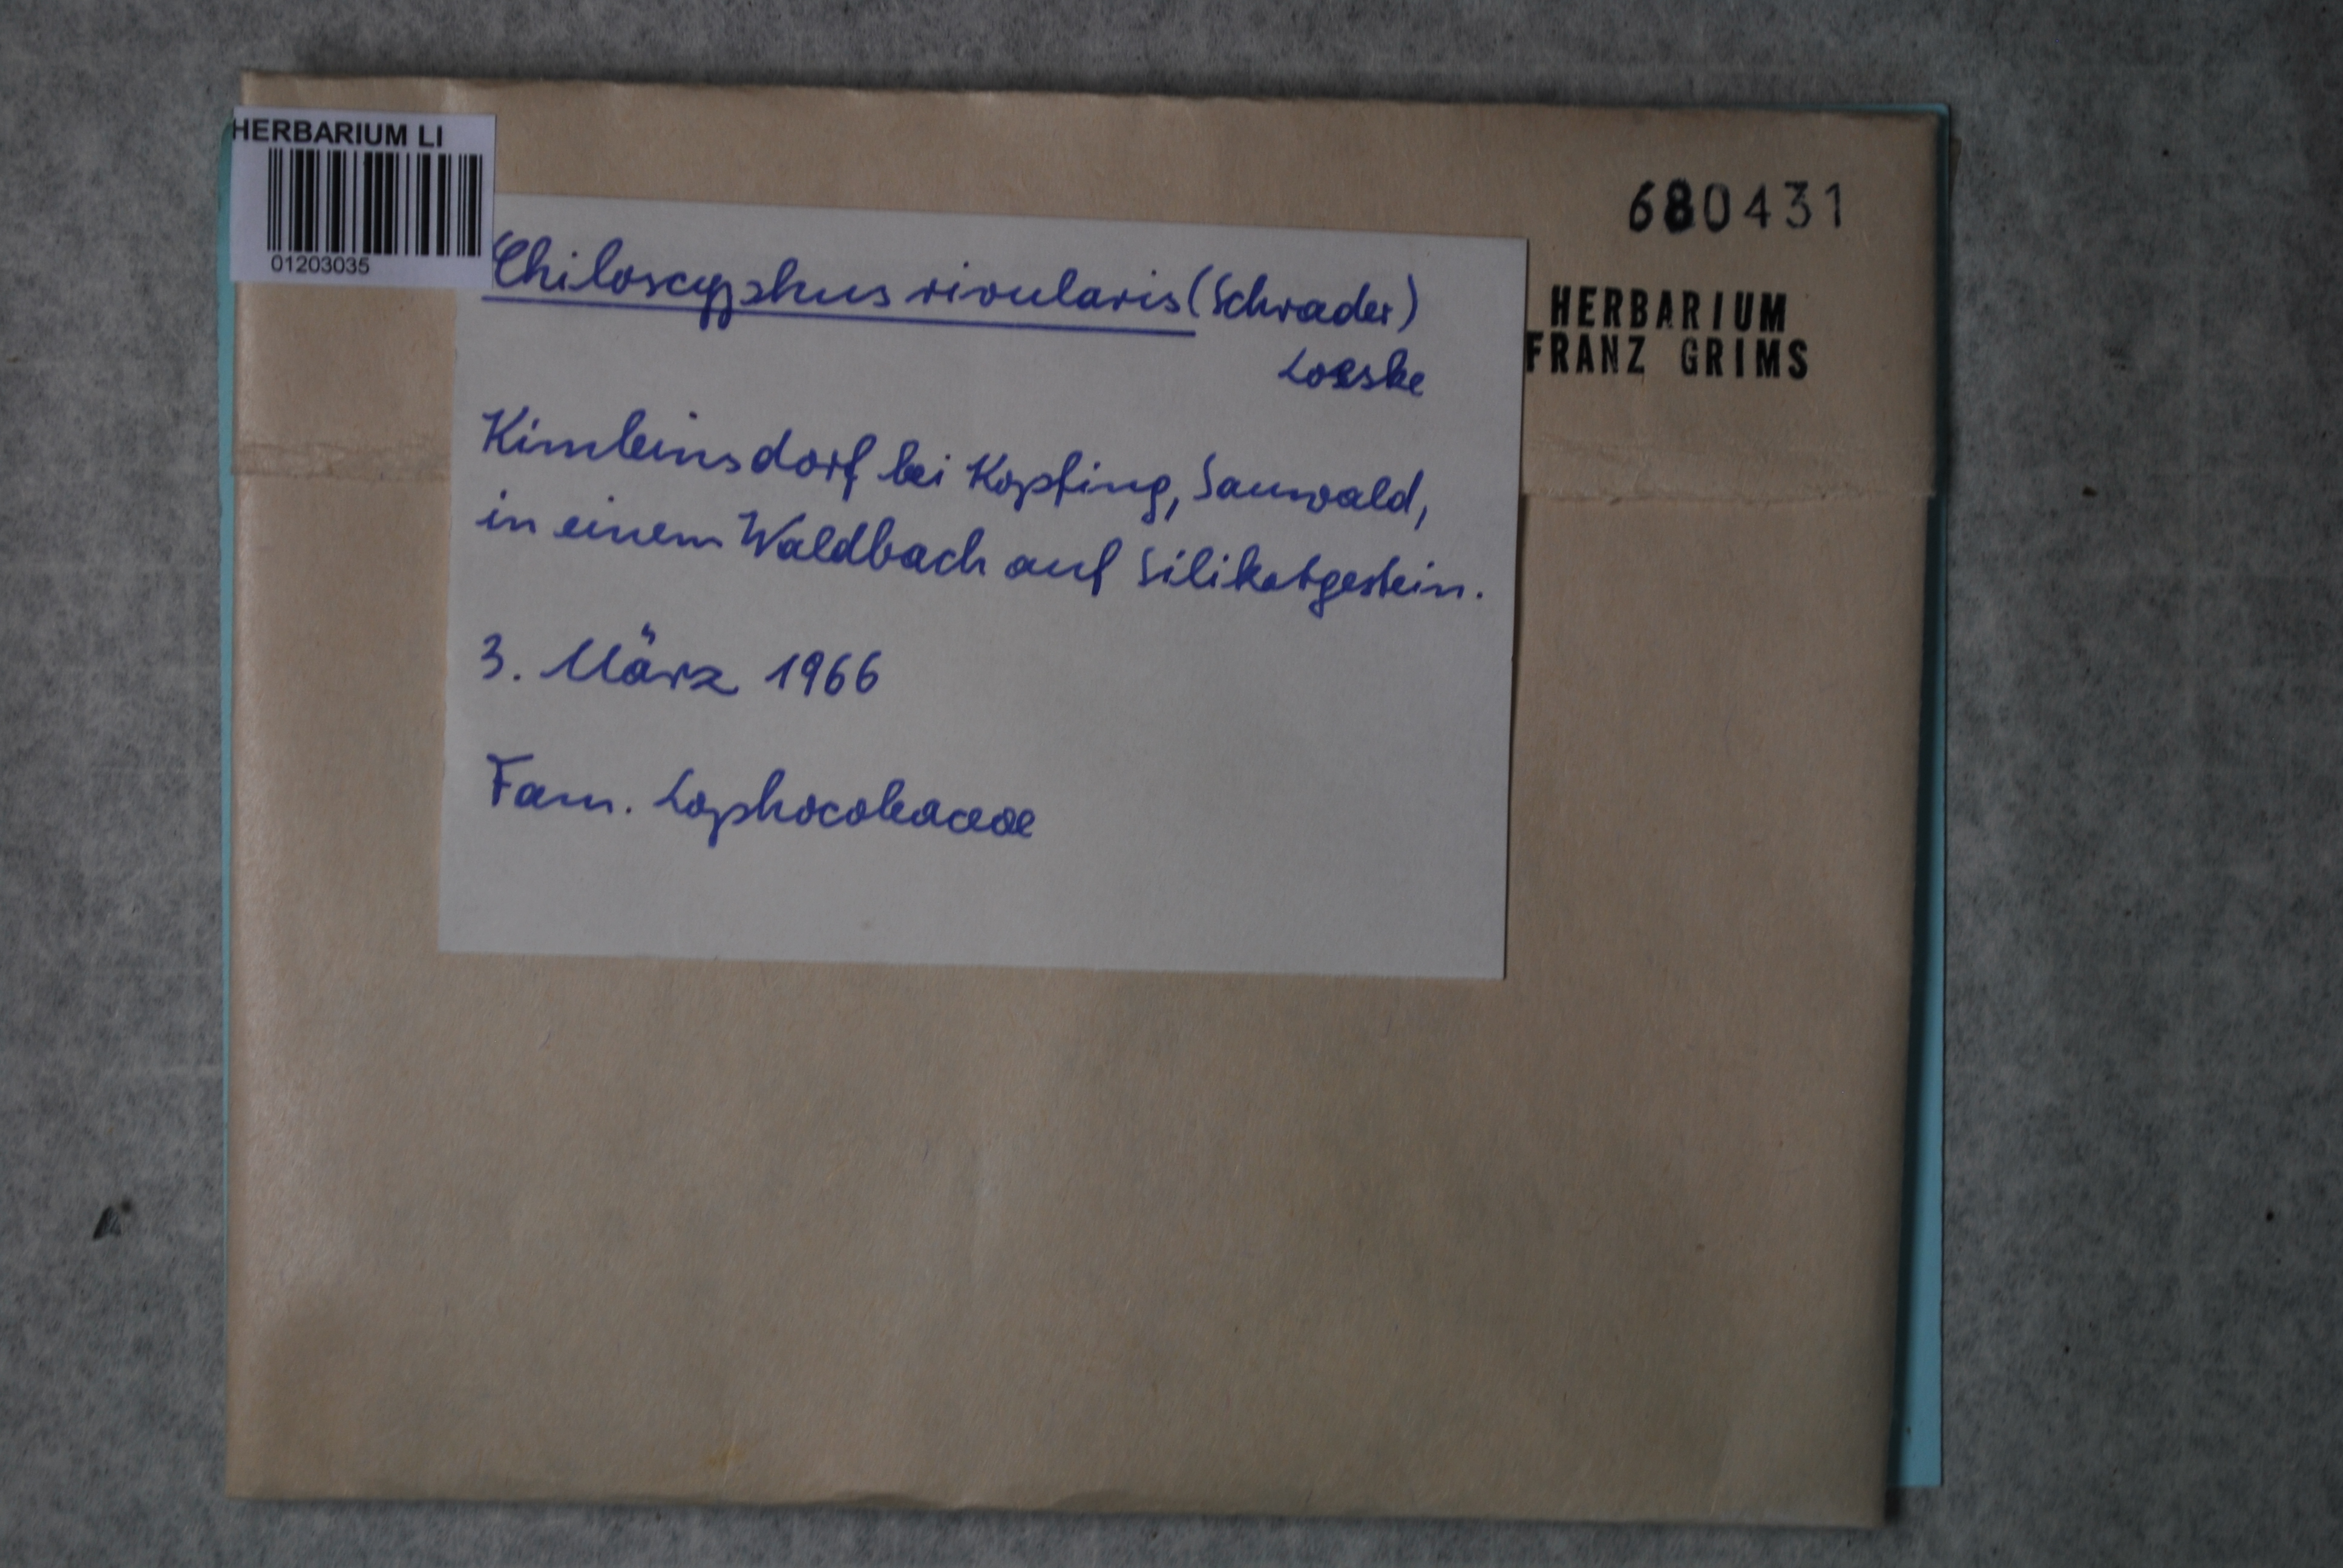 HERBARIUM LI
01203035
680431
HERBARIUM
FRANZ GRIMS
Chiloscyphus rivularis (Schrader)
Loeske
Kimleinsdorf bei Kopfing, Sauwald,
in einem Waldbach auf Silikatgestein.
3. März 1966
Fam. Lophocoleaceae